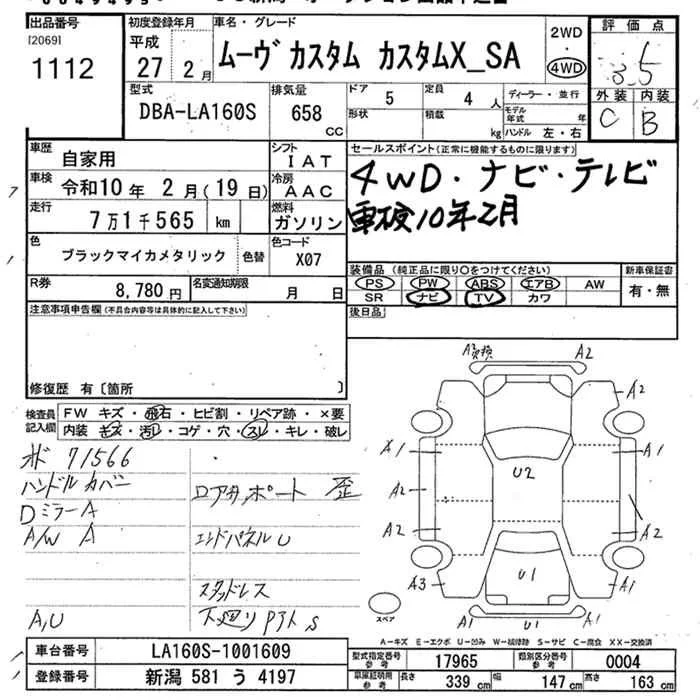 出品番号 初度登録年月 車名・グレード 2WD 評価点
[2069] 平成 ムーヴ カスタム カスタムX_SA ・ 3.5
1112 27年 2月 4WD 外装 内装
型式 排気量 ドア 定員 ディーラー・並行 C B
DBA-LA160S 658 CC 5 4人 モデル年式 年
形状 積載 kg ハンドル 左・右
車歴 自家用 シフト IAT セールスポイント(正常に機能するものに限ります)
車検 令和10年 2月(19日) 冷房 AAC 4WD・ナビ・テレビ
走行 7万1千565 km 燃料 ガソリン 車検10年2月
色 ブラックマイカメタリック 色替 色コード X07
装備品 (純正品に限り○をつけてください) 新車保証書
R券 8,780円 名変通知期限 月 日 PS PW ABS エアB AW 有・無
SR ナビ TV カワ
注意事項申告欄(不具合内容等は具体的に記入して下さい) 後日品
修復歴 有〔箇所 〕
検査員記入欄 FW キズ・飛石・ヒビ割・リペア跡・×要
内装 キズ・汚レ・コゲ・穴・スレ・キレ・破レ
71566
ハンドルカバー ロアサポート 歪
DミラーA
A/W A エンドパネルU
スタッドレス
A,U 下廻りサビ S
A2 A2
A1 A1
A2 U2
A2 A2
A3 U1 A1
A1 U1 A1
スペア
A-キズ E-エクボ U-凹み W-補修跡 S-サビ C-腐食 XX-交換済
車台番号 LA160S-1001609 型式指定番号 参考 17965 類別区分番号 参考 0004
登録番号 新潟 581 う 4197 車庫証明用 参考 長さ 339 cm 幅 147 cm 高さ 163 cm